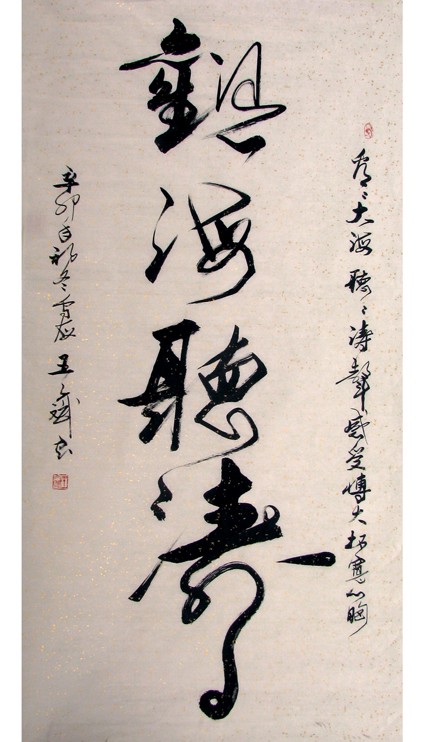 觀海聽濤
看看大海聽聽濤聲感受博大拓寬心胸
辛卯年初冬 王 書